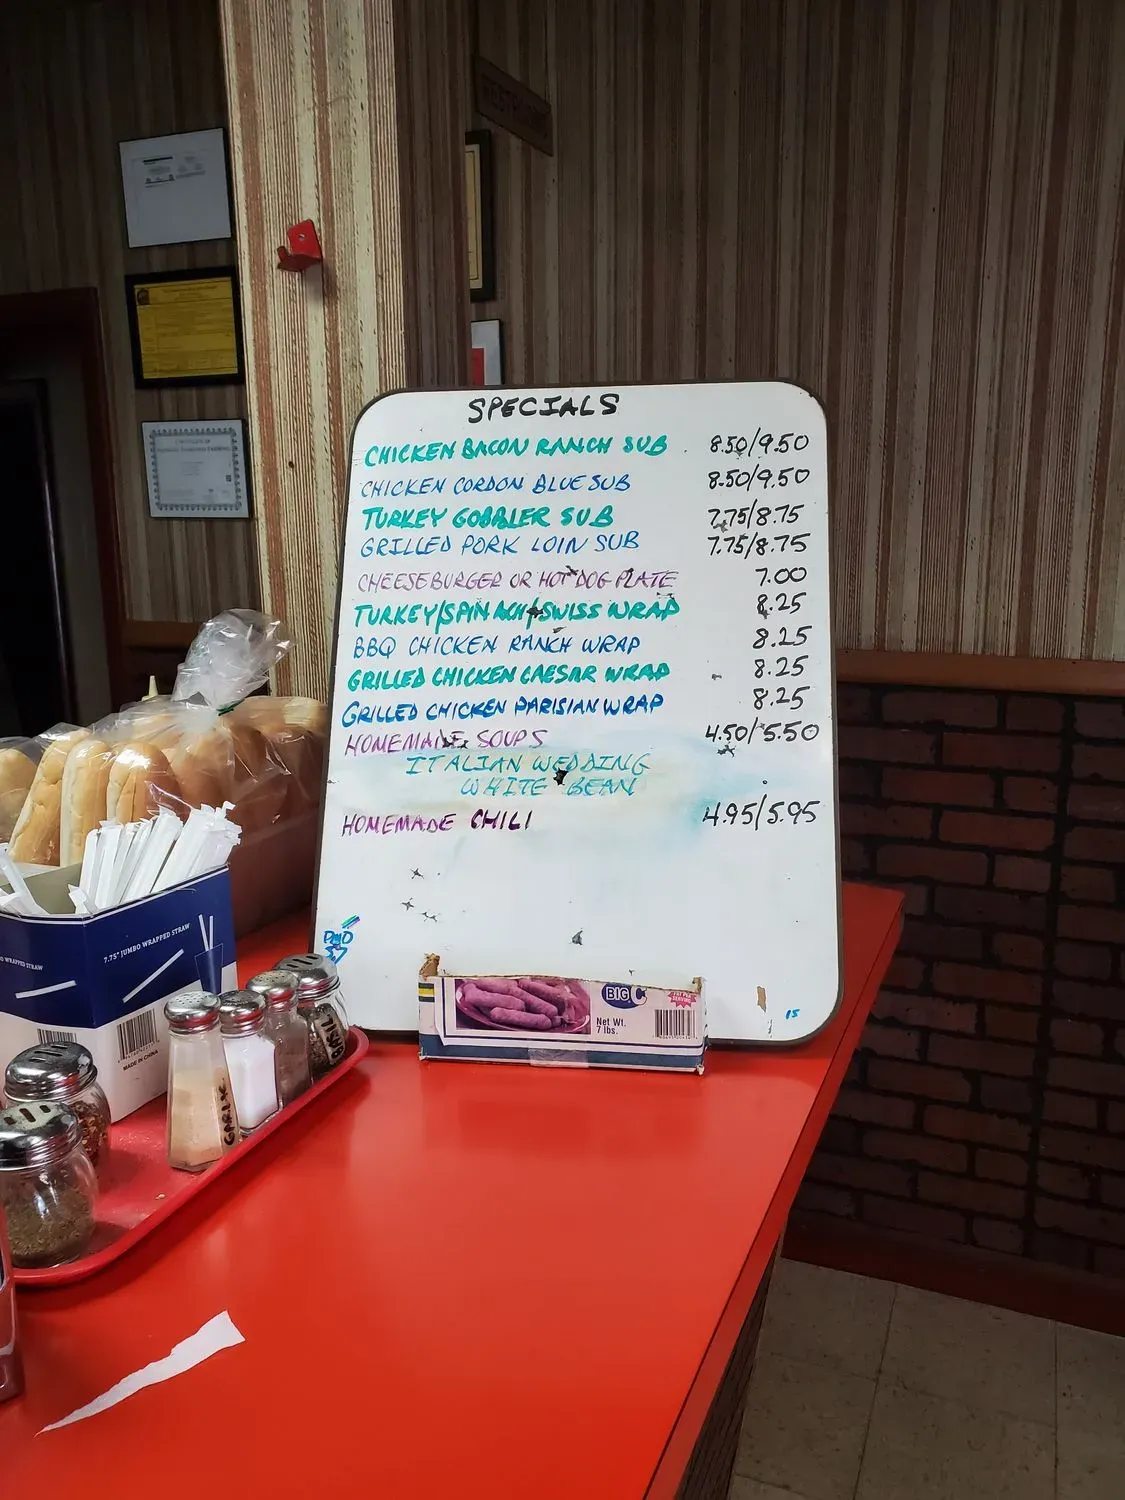 SPECIALS
CHICKEN BACON RANCH SUB 8.50/9.50
CHICKEN CORDON BLUE SUB 8.50/9.50
TURKEY GOBBLER SUB 7.75/8.75
GRILLED PORK LOIN SUB 7.75/8.75
CHEESEBURGER OR HOT DOG PLATE 7.00
TURKEY/SPINACH/SWISS WRAP 8.25
BBQ CHICKEN RANCH WRAP 8.25
GRILLED CHICKEN CAESAR WRAP 8.25
GRILLED CHICKEN PARISIAN WRAP 8.25
HOMEMADE SOUPS 4.50/5.50
ITALIAN WEDDING
WHITE BEAN
HOMEMADE CHILI 4.95/5.95
15
BIG C
Net Wt.
7 lbs.
7.75" JUMBO WRAPPED STRAW
WRAPPED STRAW
MADE IN CHINA
GARLIC
BASIL